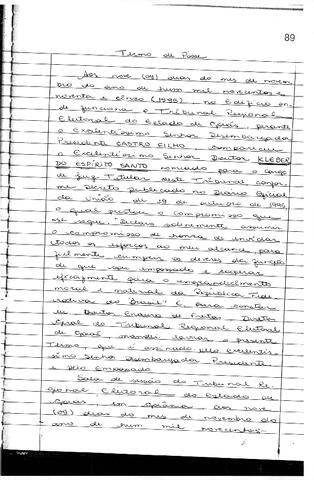 89
Termo de Posse
Aos nove (09) dias do mes de novem
bro do ano de hum mil novecentos e
noventa e cinco (1995), no Edifício on
de funciona o Tribunal Regional
Eleitoral do Estado de Goiás, perante
o Excelentíssimo Senhor Desembargador
Presidente CASTRO FILHO, compareceu
o Excelentíssimo Senhor Doutor KLEBER
DO ESPÍRITO SANTO nomeado para o cargo
de Juiz Titular deste Tribunal confor
me Decreto publicado no Diário Oficial
da União de 19 de outubro de 1995
o qual prestou o compromisso que
se segue: "Declaro solenemente assumir
o compromisso de honra de envidar
todos os esforços ao meu alcance para
fielmente cumprir os deveres da função
de que sou empossado e cooperar
eficazmente para o engrandecimento
moral e material da República Fede
rativa do Brasil" E para constar
eu Doutor de Freitas Diretor
Geral do Tribunal Regional Eleitoral
de Goiás, mandei lavrar o presente
Termo, que é assinado pelo Excelentís
simo Senhor Desembargador Presidente
e pelo Empossado.
Sala de sessão do Tribunal Re
gional Eleitoral do Estado de
Goiás, em Goiânia, aos nove
(09) dias do mes de novembro do
ano de hum mil novecentos